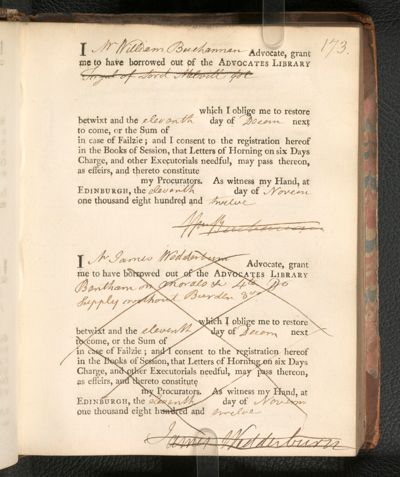 173.
I Mr William Buchannan Advocate, grant
me to have borrowed out of the ADVOCATES LIBRARY
Tryal of Lord Melvill 8vo
which I oblige me to restore
betwixt and the eleventh day of Decem next
to come, or the Sum of
in case of Failzie; and I consent to the registration hereof
in the Books of Session, that Letters of Horning on six Days
Charge, and other Executorials needful, may pass thereon,
as effeirs, and thereto constitute
my Procurators. As witness my Hand, at
EDINBURGH, the eleventh day of Novem
one thousand eight hundred and twelve
Wm Buchannan
I Mr James Wedderburn Advocate, grant
me to have borrowed out of the ADVOCATES LIBRARY
Bentham on Morals & 4to Do
Supply without Burden 8vo
which I oblige me to restore
betwixt and the eleventh day of Decem next
to come, or the Sum of
in case of Failzie; and I consent to the registration hereof
in the Books of Session, that Letters of Horning on six Days
Charge, and other Executorials needful, may pass thereon,
as effeirs, and thereto constitute
my Procurators. As witness my Hand, at
EDINBURGH, the eleventh day of Novem
one thousand eight hundred and twelve
James Wedderburn